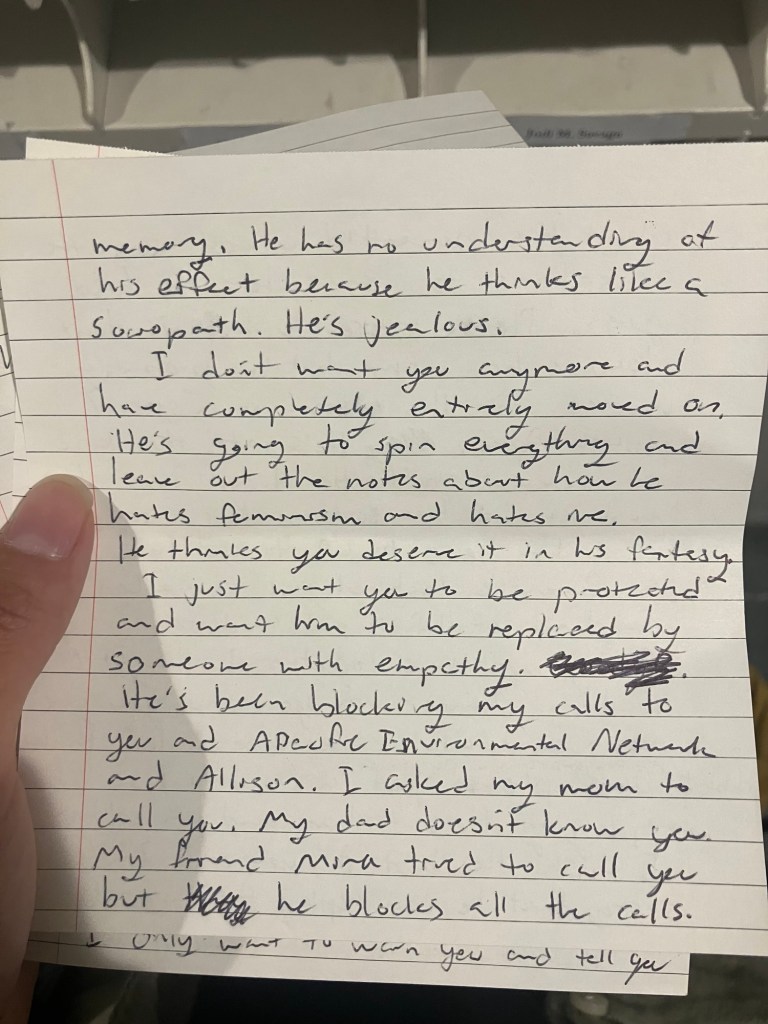 memory. He has no understanding of
his effect because he thinks like a
sociopath. He's jealous.
I don't want you anymore and
have completely entirely moved on.
He's going to spin everything and
leave out the notes about how he
hates feminism and hates me.
He thinks you deserve it in his fantasy.
I just want you to be protected
and want him to be replaced by
someone with empathy.
He's been blocking my calls to
you and APacific Environmental Network
and Allison. I asked my mom to
call you. My dad doesn't know you.
My friend Mina tried to call you
but he blocks all the calls.
I only want to warn you and tell you